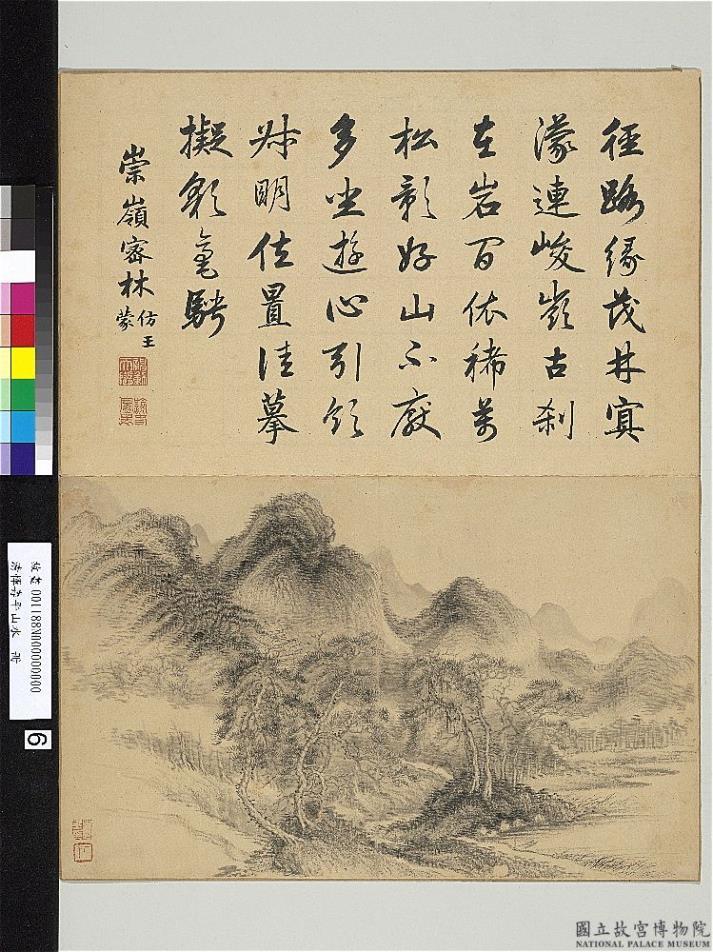 徑路緣茂林冥
濛連峻嶺古刹
在岩間依稀萬
松影好山不厭
多坐遊心引領
叔明位置佳摹
擬彩毫騁
崇嶺密林仿王蒙
故畫 001188N000000000
山水 冊
6
國立故宮博物院
NATIONAL PALACE MUSEUM